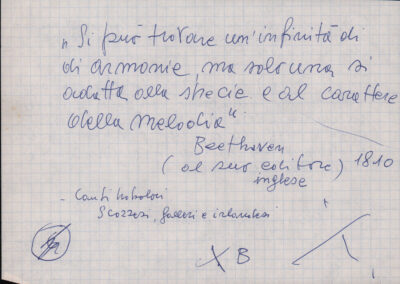 „Si può trovare un'infinità di
di armonie, ma solo una si
adatta alla specie e al carattere
della melodia“
Beethoven
(al suo editore) 1810
inglese
- Canti popolari
Scozzesi, gallesi e irlandesi
X B